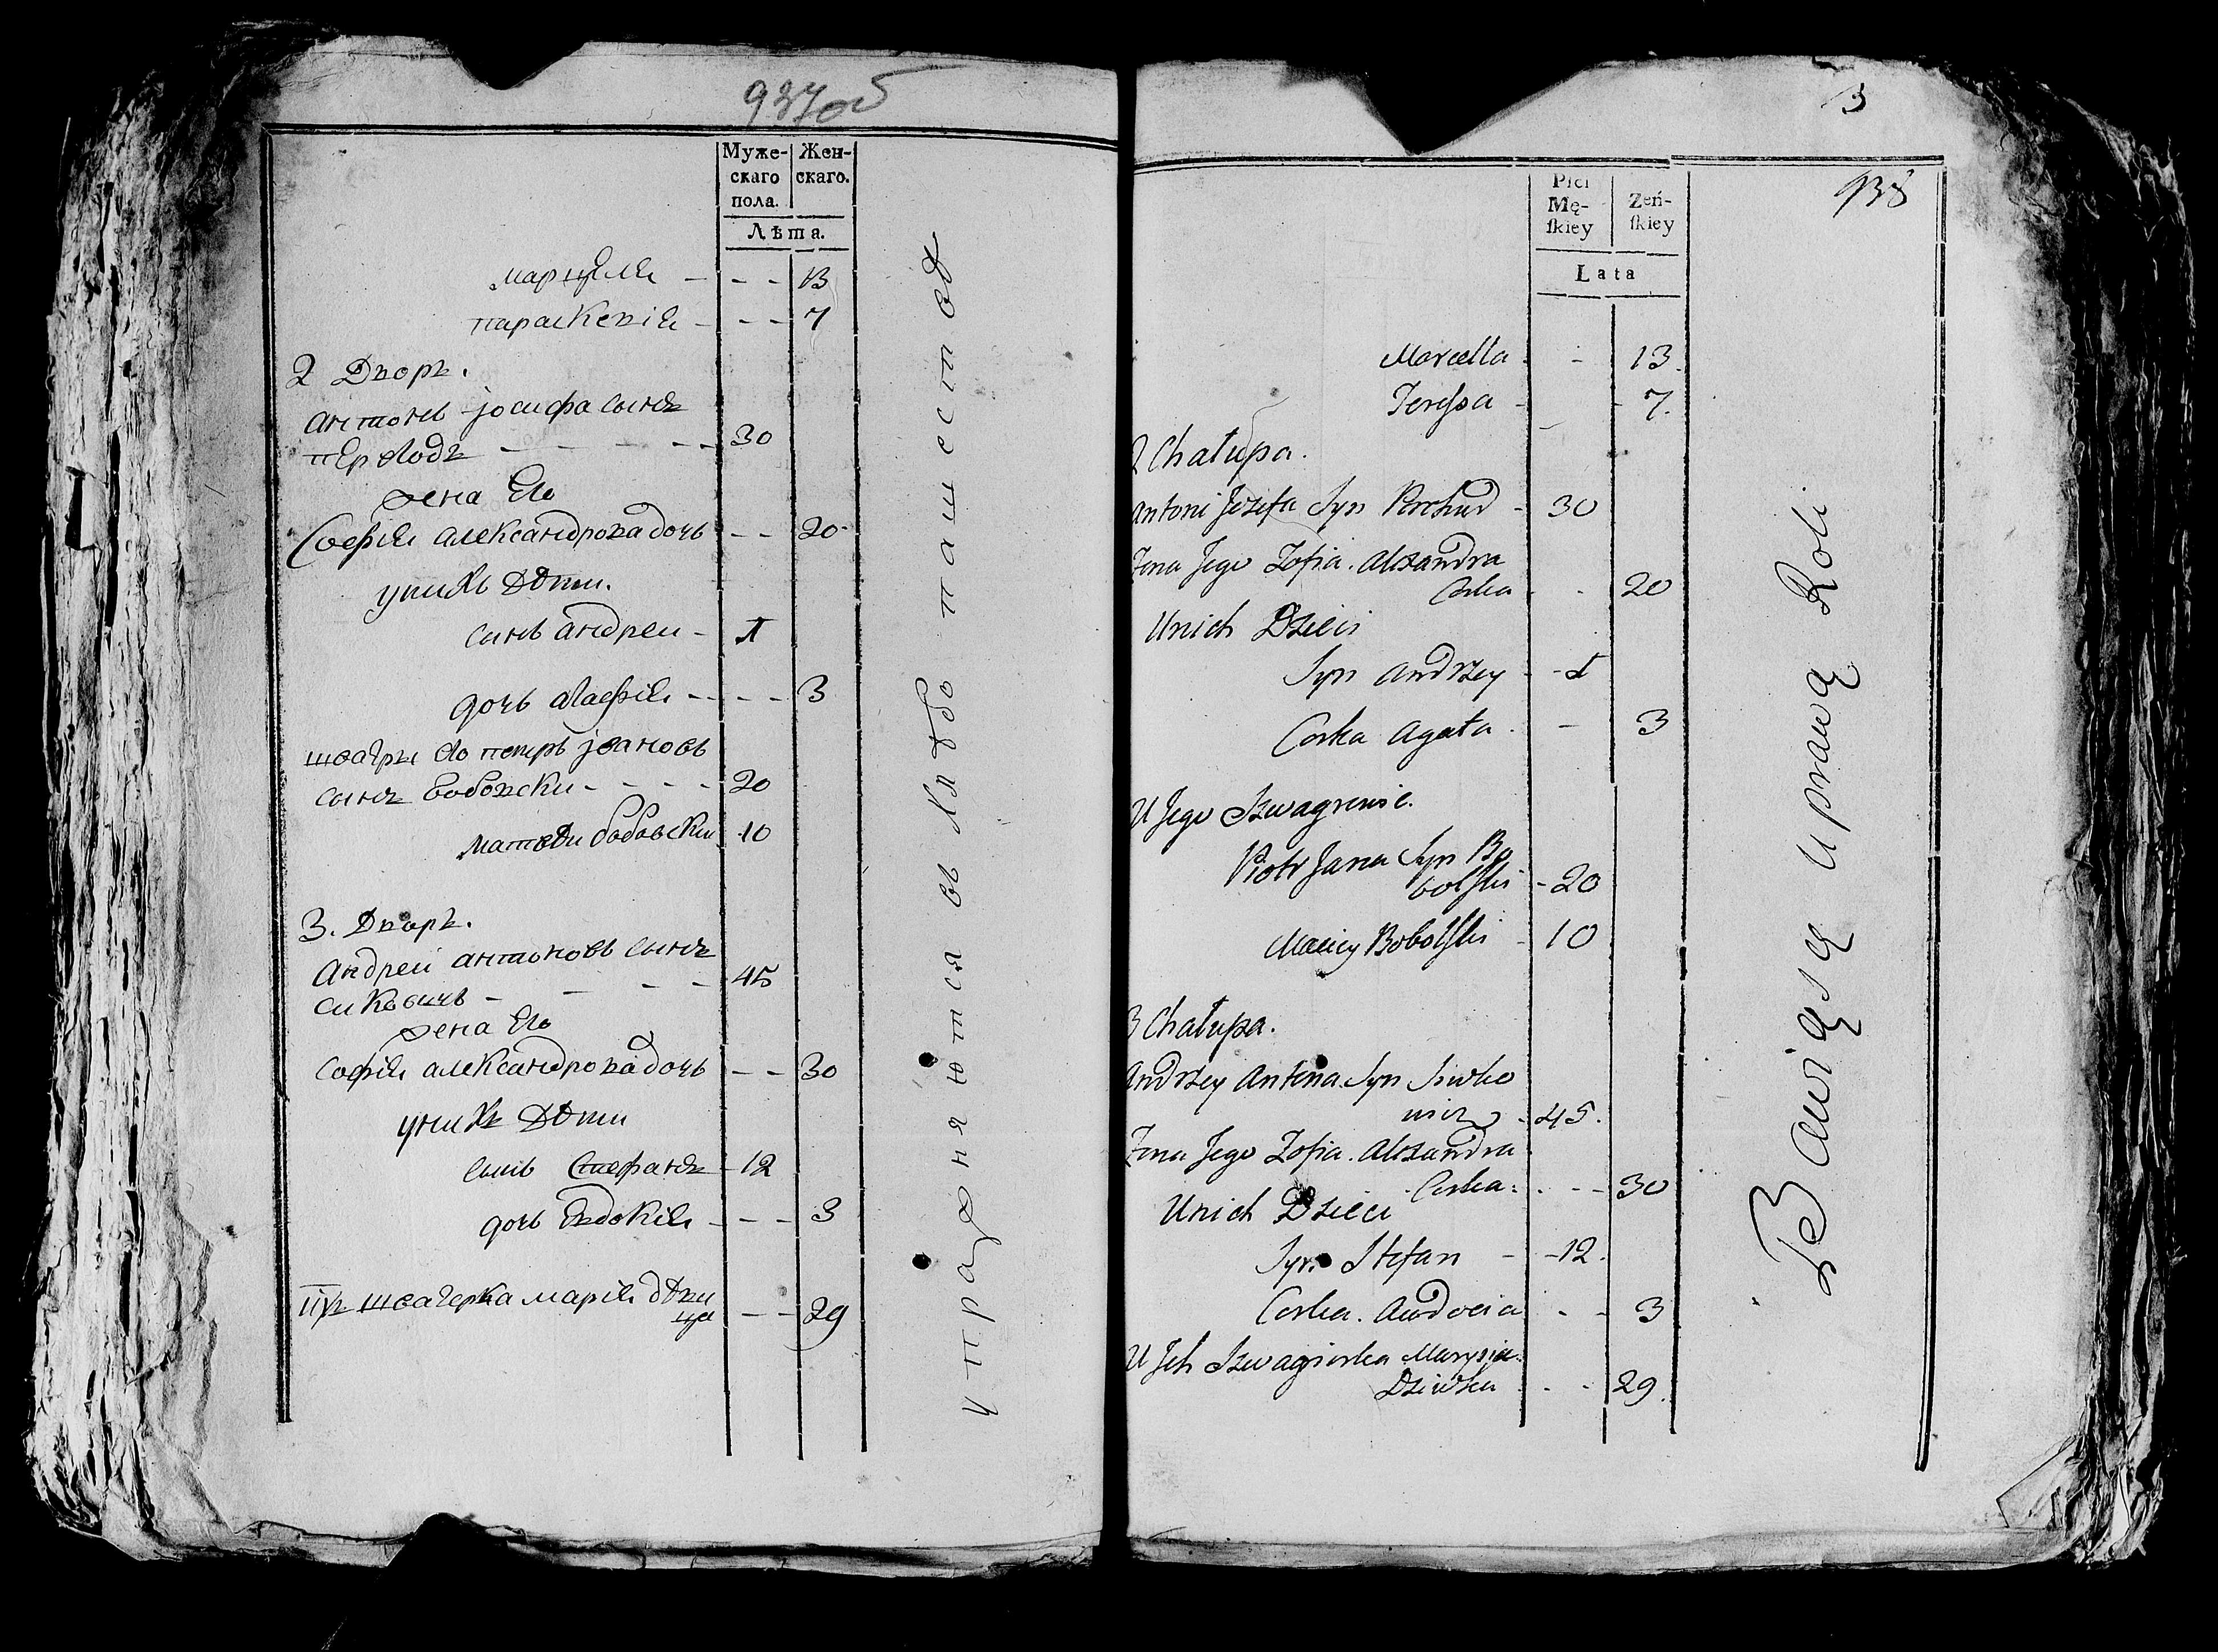 937об
Муже-
скаго
пола.
Жен-
скаго.
Лѣта.
Марцеля - - - 13
Параскевія - - - 7
2 Дворъ.
Антонъ Іосифа сынъ
- - - - 30
жена Его
Софія Александрова дочь - - 20
у нихъ Дѣти.
синъ Андреи - 1
дочь - - - 3
швагры Его Петръ Івановъ
сынъ Бобовски - - - - 20
Матѣи Бобовски 10
3. Дворъ.
Андреи Антоновъ сынъ
- - - 45
жена Его
Софія Александрова дочь - - 30
у нихъ Дѣти
сынъ Стефанъ - 12
дочь Евдокія - - - 3
швагерка Марія дѣви
ца - - 29
упражняются въ хлѣбопашествѣ
3
938
Płci
Mę-
skiey
Żeń-
skiey
Lata
Marcella - - 13.
Teressa - - 7.
2 Chałupa.
Antoni Jozefa Syn - 30
Żona Jego Zofia. Alexandra
Corka - - 20
Unich Dzieci
Syn Andrzey - 1
Corka Agata. - 3
U Jego Szwagrowie.
Piotr Jana Syn Bo
bolski - 20
Maciey Bobolski - 10
3 Chałupa.
Andrzey Antona Syn
wicz - 45.
Żona Jego Zofia. Alexandra
Corka: - - 30
Unich Dzieci
Syn Stefan - - 12.
Corka. Audocia - - 3
U Jch Szwagierka Marysia
Dziewka - - 29.
Bawią się Uprawą Roli